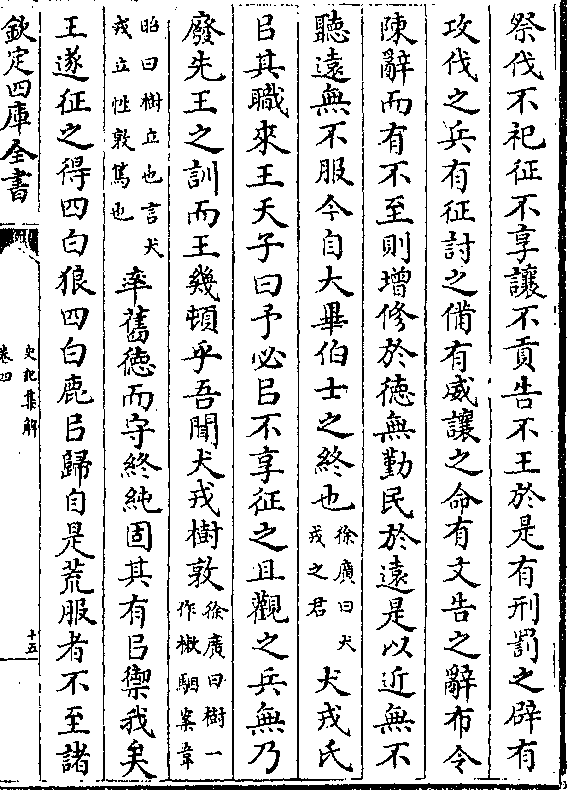 祭伐不祀征不享讓不貢告不王於是有刑罰之辟有
攻伐之兵有征討之備有威讓之命有文告之辭布令
陳辭而有不至則增修於徳無勤民於遠是以近無不
聽遠無不服今自大畢伯士之終也徐廣曰犬戎之君犬戎氏
㠯其職來王天子曰予必㠯不享征之且觀之兵無乃
廢先王之訓而王幾頓乎吾聞犬戎樹敦徐廣曰樹一作樕駰案韋
昭曰樹立也言犬戎立性敦篤也率舊徳而守終純固其有㠯禦我矣
王遂征之得四白狼四白鹿㠯歸自是荒服者不至諸
欽定四庫全書
史記集解
卷四
十五